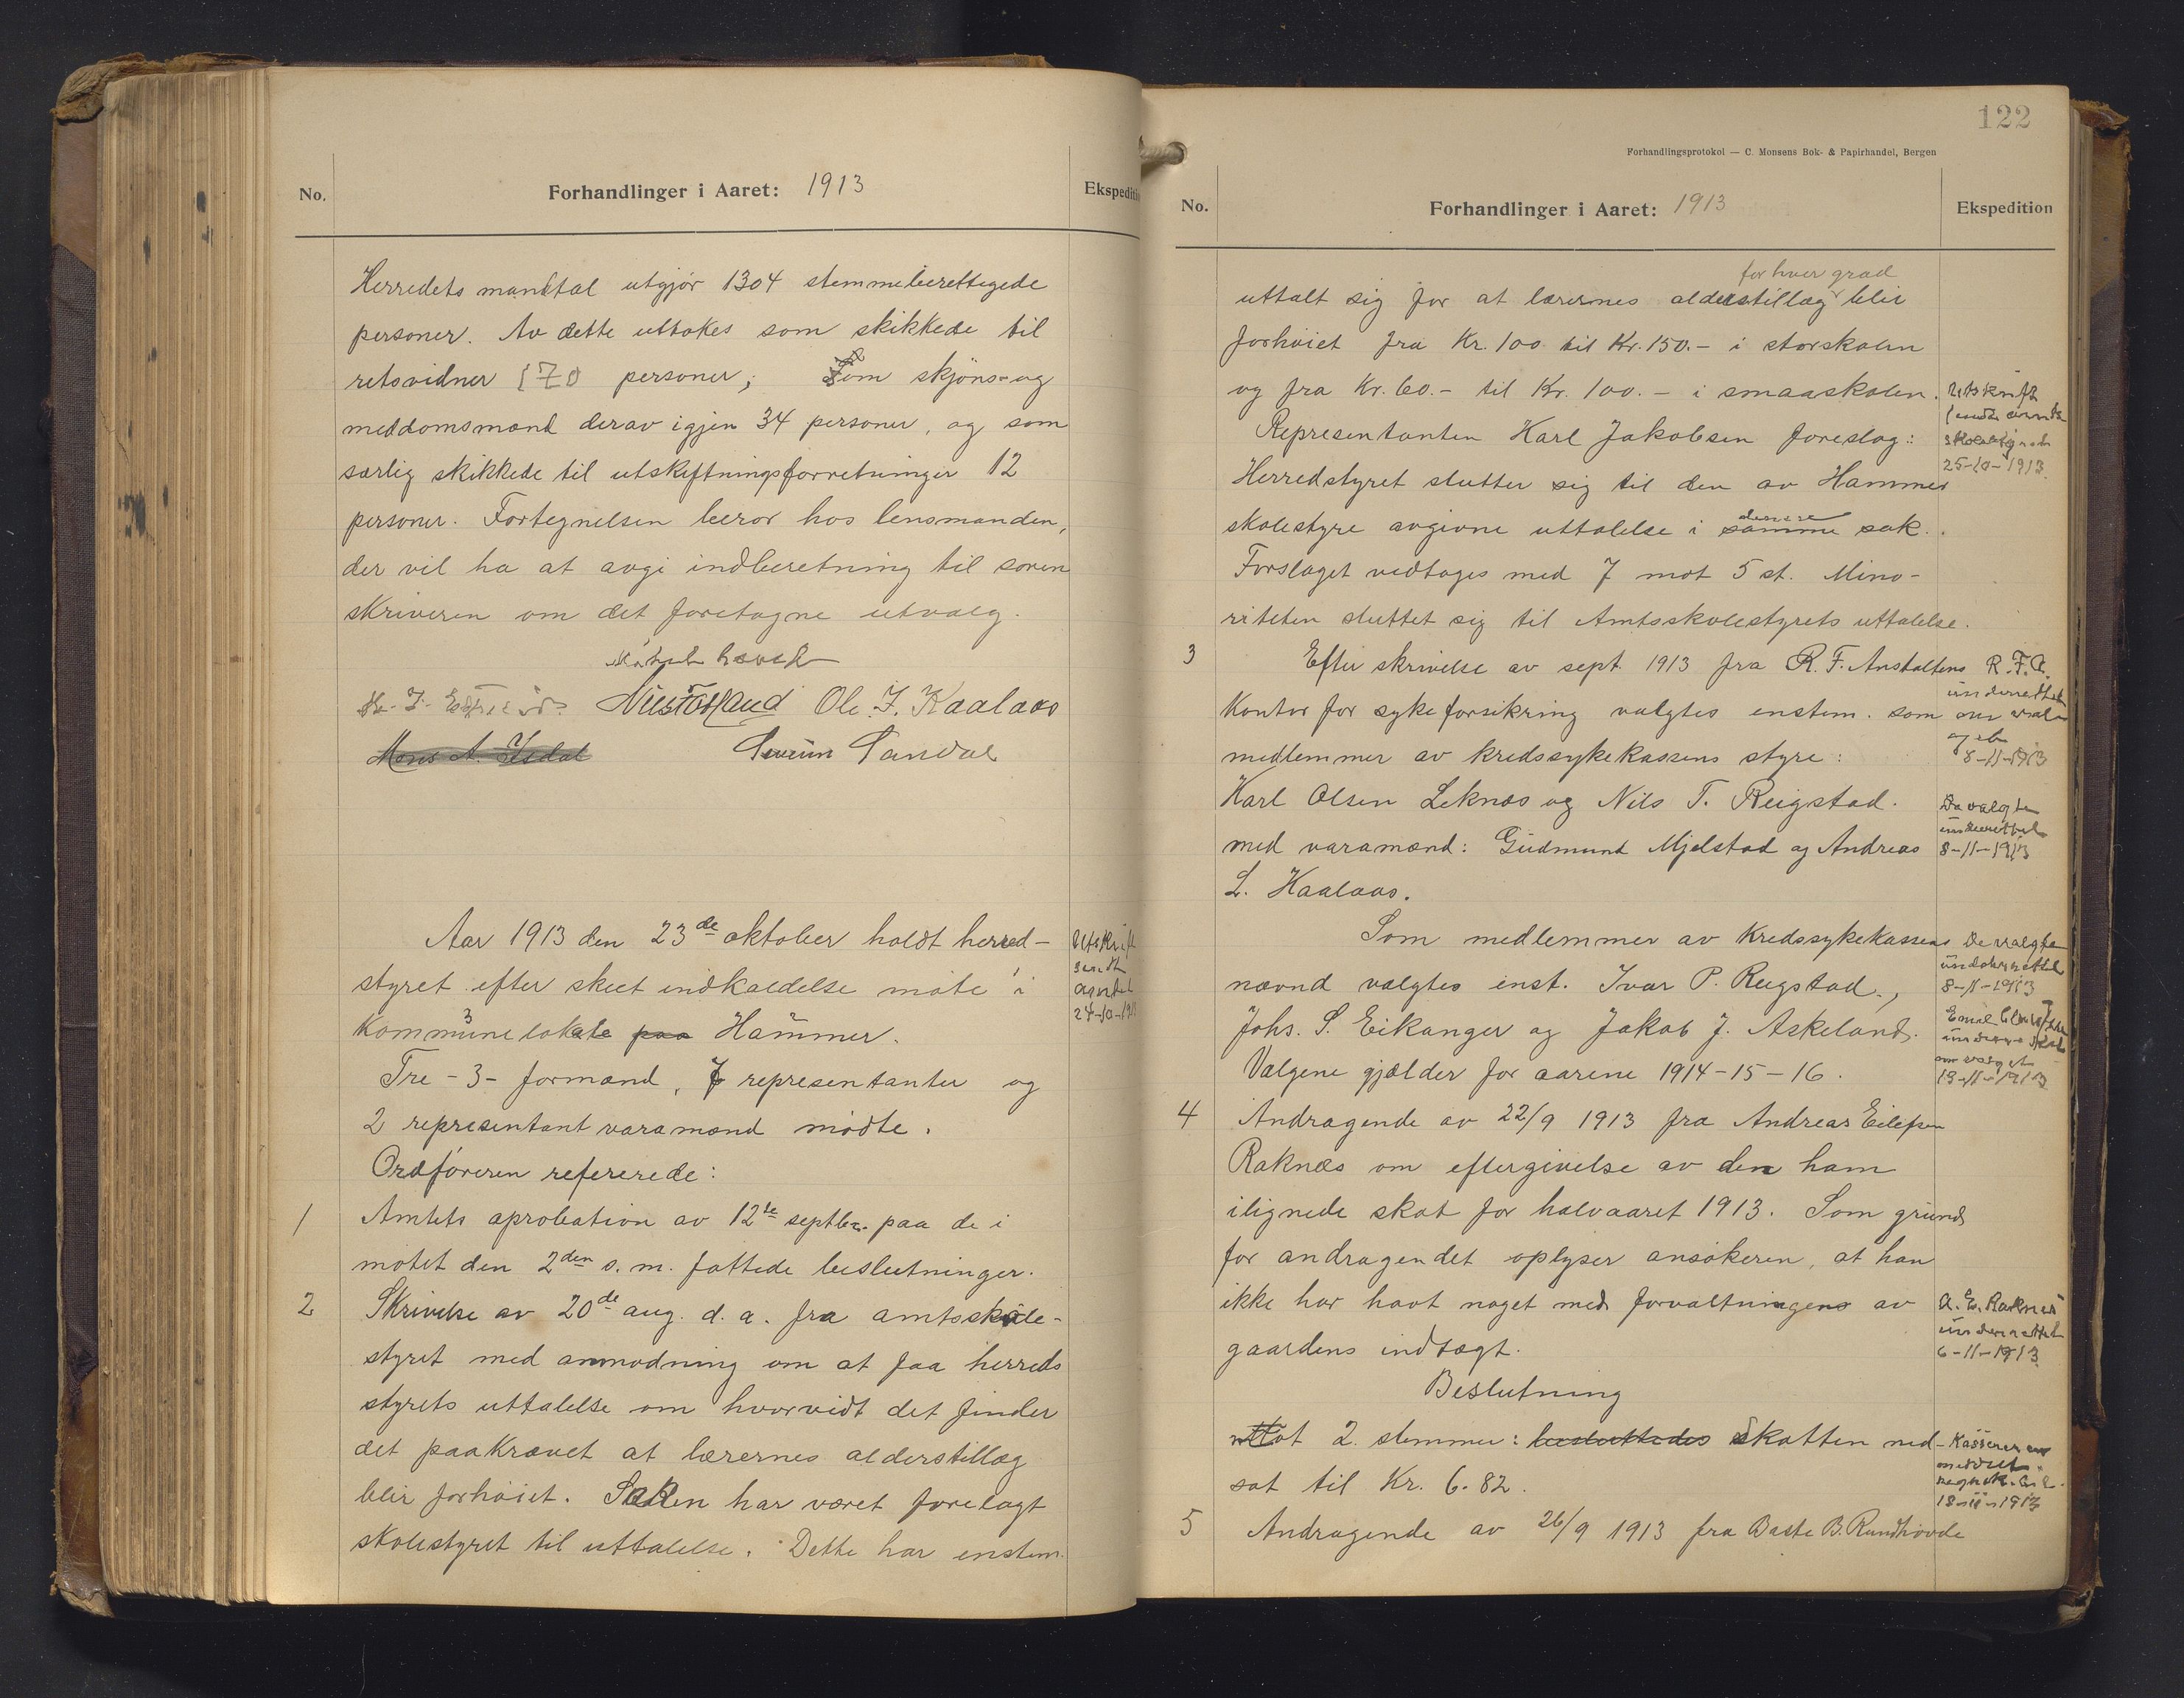 No.
Forhandlinger i Aaret: 1913
Ekspediti
Herredets mandtal utgjør 1304 stemmeberettigede
personer. Av dette uttokes som skikkede til
retsvidner 170 personer; som skjöns- og
meddomsmænd derav igjen 34 personer, og som
særlig skikkede til utskiftningsforretninger 12
personer. Fortegnelsen beror hos lensmanden,
der vil ha at avgi indberetning til soren
skriveren om det foretagne utvalg.
Mötet hævet
Ole J. Kaalaas
Mons A. Isdal
Sandal
Aar 1913 den 23de oktober holdt herred-
styret efter skeet indkaldelse möte i
Kommunelokale paa Hammer.
Tre - 3 - formænd, 7 representanter og
2 representant varamænd mödte.
Ordföreren refererede:
1 Amtets aprobation av 12te septbr. paa de i
mötet den 2den s. m. fattede beslutninger.
2 Skrivelse av 20de aug. d. a. fra amtsskole-
styret med anmodning om at faa herreds
styrets uttalelse om hvorvidt det finder
det paakrævet at lærernes alderstillæg
blir forhöiet. Saken har været forelagt
skolestyret til uttalelse. Dette har enstem.
Utskrift
sendt
amtet
24-10-191
122
Forhandlingsprotokol — C. Monsens Bok- & Papirhandel, Bergen
No.
Forhandlinger i Aaret: 1913
Ekspedition
for hver grad
uttalt sig for at lærernes alderstillæg blir
forhöiet fra Kr. 100 til Kr. 150.- i storskolen
og fra Kr. 60.- til Kr. 100.- i smaaskolen.
Representanten Karl Jakobsen foreslog:
Herredstyret slutter sig til den av Hammer
skolestyre avgivne uttalelse i samme sak.
denne
Forslaget vedtages med 7 mot 5 st. Mino-
riteten sluttet sig til Amtsskolestyrets uttalelse.
Utskrift
sendt
25-10-1913
3 Efter skrivelse av sept. 1913 fra R. F. Anstaltens
Kontor for sykeforsikring valgtes enstem. som
medlemmer av kredssykekassens styre:
Karl Olsen Leknes og Nils T. Reigstad.
med varamænd: Gudmund Mjelstad og Andreas
L. Kaalaas.
R.F.A.
underrettet
om val-
get
8-11-1913
De valgte
underrettet
8-11-1913
Som medlemmer av Kredssykekassens
nævnd valgtes enst. Ivar P. Reigstad,
Johs. S. Eikanger og Jakob J. Askeland.
Valgene gjælder for aarene 1914-15-16.
De valgte
underrettet
8-11-1913
underrettet
om valget
19-11-1913
4 Andragende av 22/9 1913 fra Andreas Eilefsen
Raknes om eftergivelse av den ham
ilignede skat for halvaaret 1913. Som grund
for andragendet oplyser ansökeren, at han
ikke har havt noget med forvaltningens av
gaardens indtægt.
A. E. Raknes
underrettet
6-11-1913
Beslutning
Mot 2 stemmer: besluttedes Skatten ned-
sat til Kr. 6.82.
Kassereren
meddelt
18-11-1913
5 Andragende av 26/9 1913 fra Baste B. Rundhovde